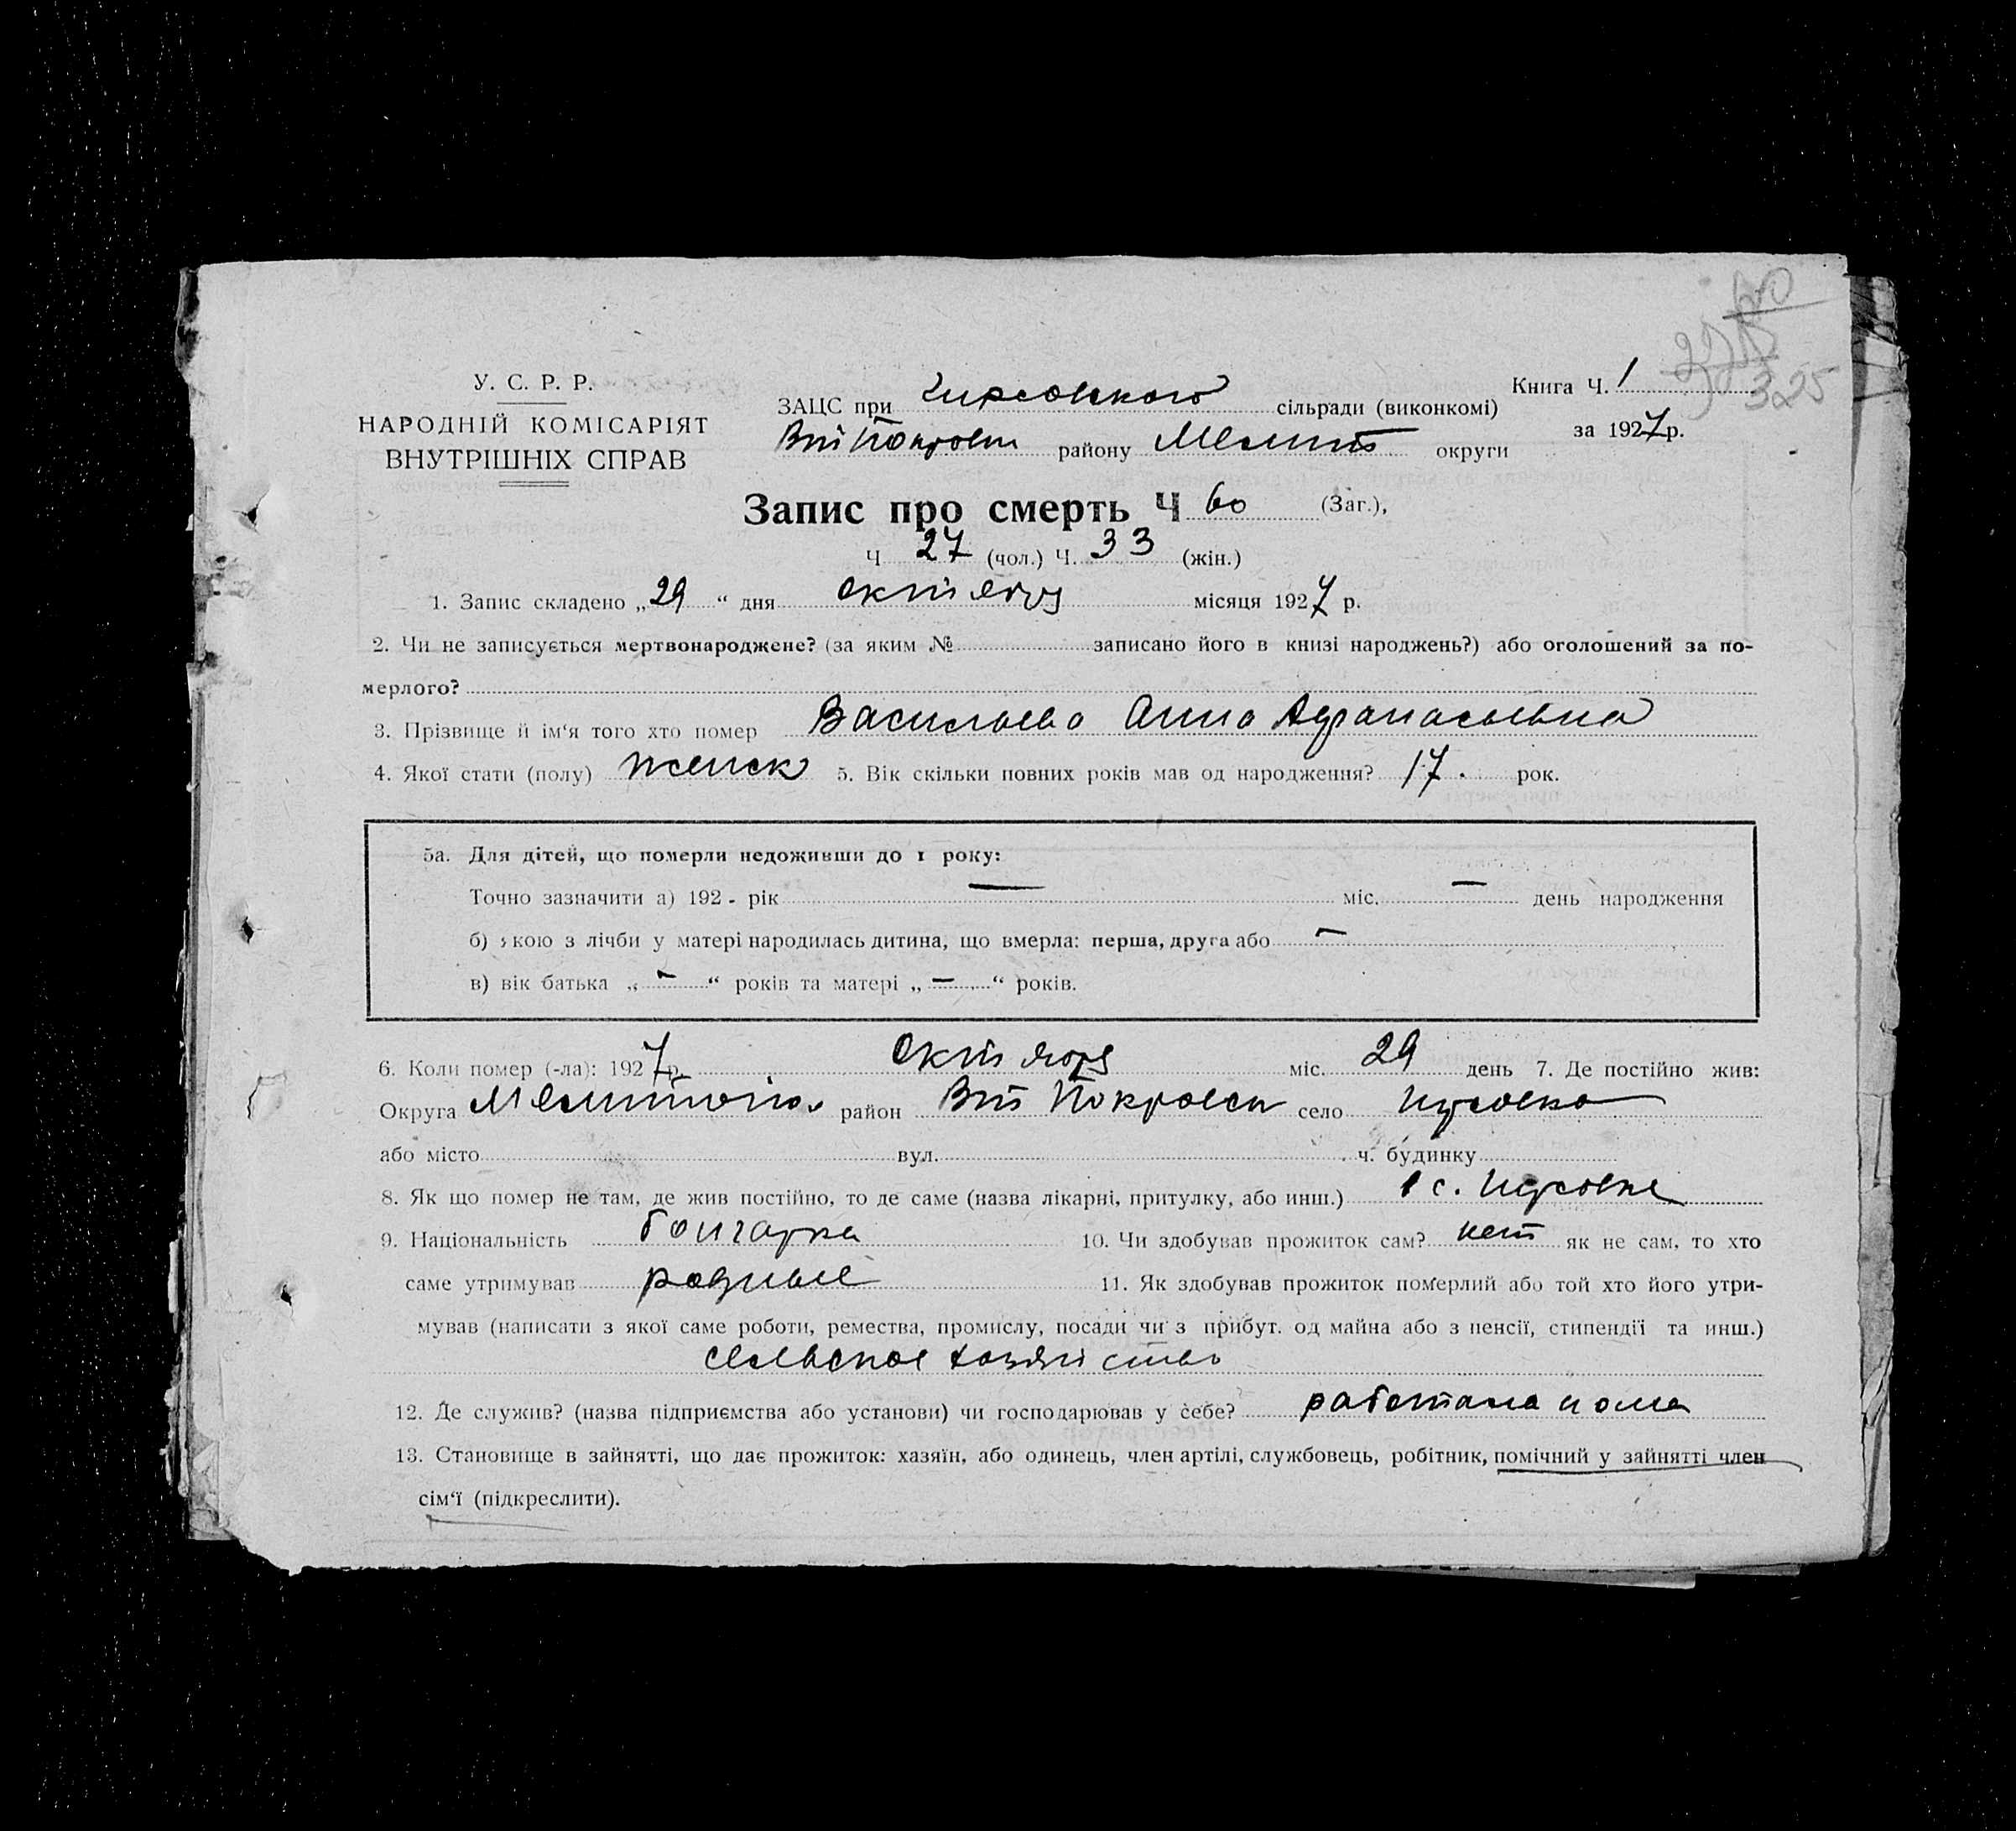 325
У. С. Р. Р.
НАРОДНІЙ КОМІСАРІЯТ
ВНУТРІШНІХ СПРАВ
ЗАЦС при сільради (виконкомі)
району Мелит округи
Книга Ч. 1
за 1927 р.
Запис про смерть Ч 60 (Заг.),
Ч 27 (чол.) Ч. 33 (жін.)
1. Запис складено „29“ дня октября місяця 1927 р.
2. Чи не записується мертвонароджене? (за яким № записано його в книзі народжень?) або оголошений за по-
мерлого?
3. Прізвище й ім‘я того хто помер Васильева Анна Афанасьевна
4. Якої стати (полу) женск 5. Вік скільки повних років мав од народження? 17. рок.
5а. Для дітей, що померли недоживши до 1 року:
Точно зазначити а) 192 - рік — міс. — день народження
б) якою з лічби у матері народилась дитина, що вмерла: перша, друга або —
в) вік батька „ — “ років та матері „ — “ років.
6. Коли помер (-ла): 1927 р. октября міс. 29 день 7. Де постійно жив:
Округа район село
або місто вул. ч. будинку
8. Як що помер не там, де жив постійно, то де саме (назва лікарні, притулку, або инш.) в с.
9. Національність болгарка 10. Чи здобував прожиток сам? нет як не сам, то хто
саме утримував родные 11. Як здобував прожиток померлий або той хто його утри-
мував (написати з якої саме роботи, ремества, промислу, посади чи з прибут. од майна або з пенсії, стипендії та инш.)
сельское хозяйство
12. Де служив? (назва підприємства або установи) чи господарював у себе? работала дома
13. Становище в зайнятті, що дає прожиток: хазяїн, або одинець, член артілі, службовець, робітник, помічний у зайнятті член
сім‘ї (підкреслити).